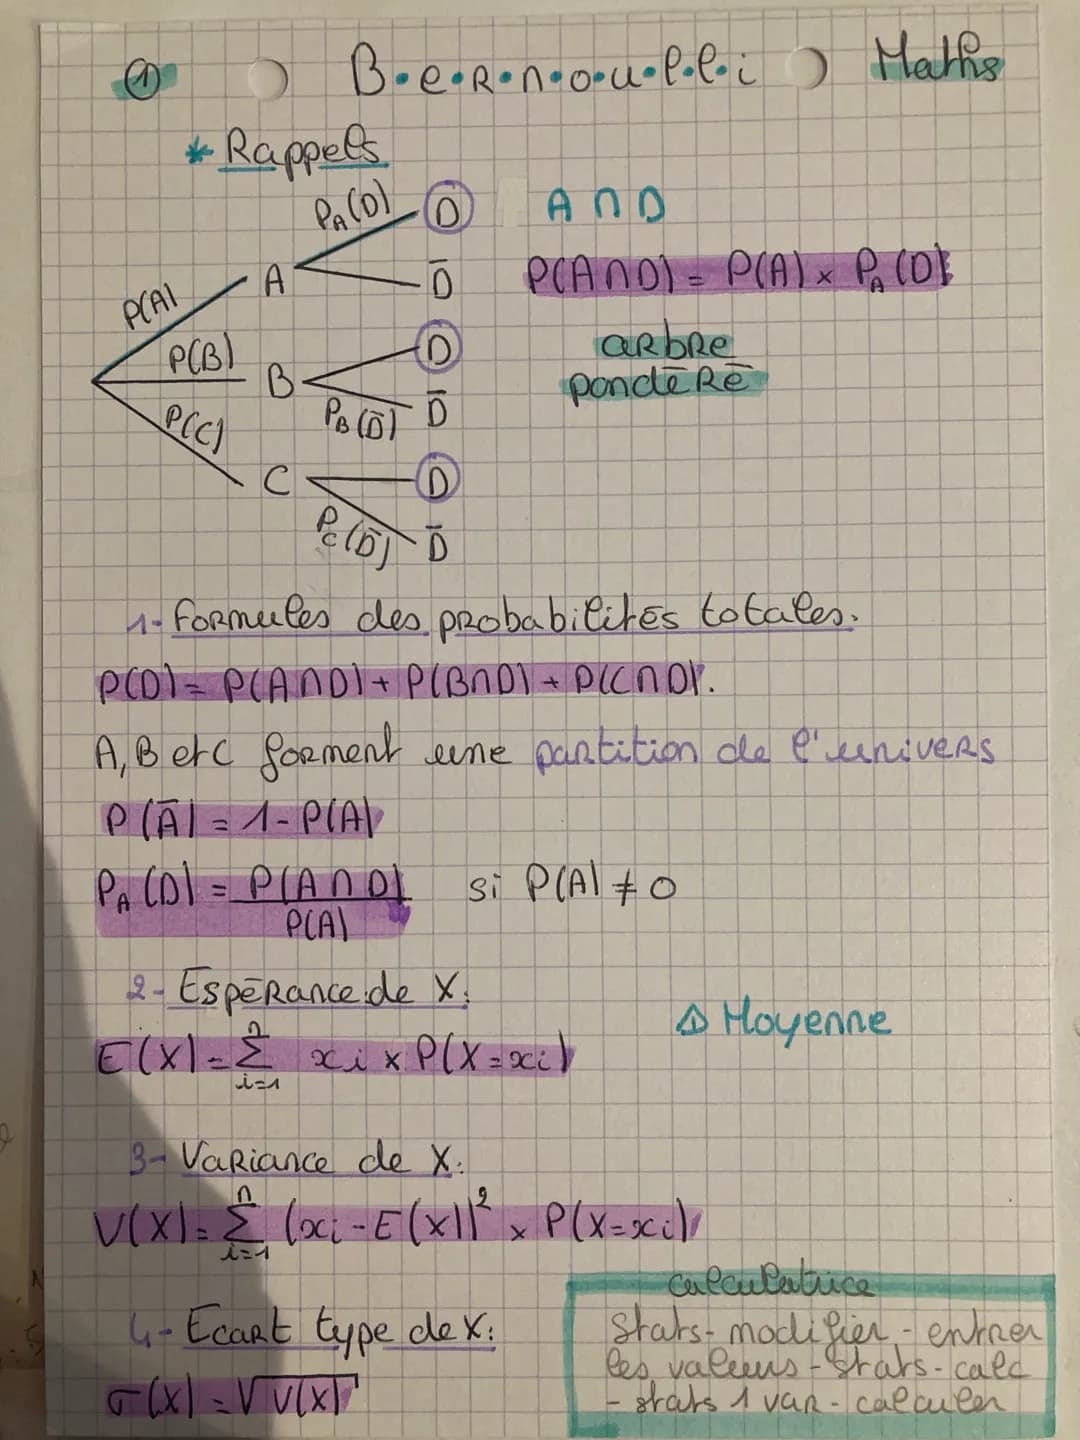 ① B.e.R.n.o.u.l.l.i Maths
* Rappels
P_A(D) D A ∩ D
P(A) A D̄ P(A∩D) = P(A) × P_A(D)
P(B) D arbre
B pondéré
P(C) P_B(D̄) D̄
C D
P_C(D̄) D̄
1- formules des probabilités totales.
P(D) = P(A∩D) + P(B∩D) + P(C∩D).
A, B et C forment une partition de l'univers
P(Ā) = 1 - P(A)
P_A(D) = P(A∩D) / P(A) si P(A) ≠ 0
2- Espérance de X:
⚠ Moyenne
E(X) = Σ_{i=1}^{n} xi × P(X = xi)
3- Variance de X:
V(X) = Σ_{i=1}^{n} (xi - E(x))² × P(X = xi)
4- Ecart type de X:
σ(X) = √V(X)
calculatrice
Stats - modifier - entrer
les valeurs - stats - calc
- stats 1 var - calculer